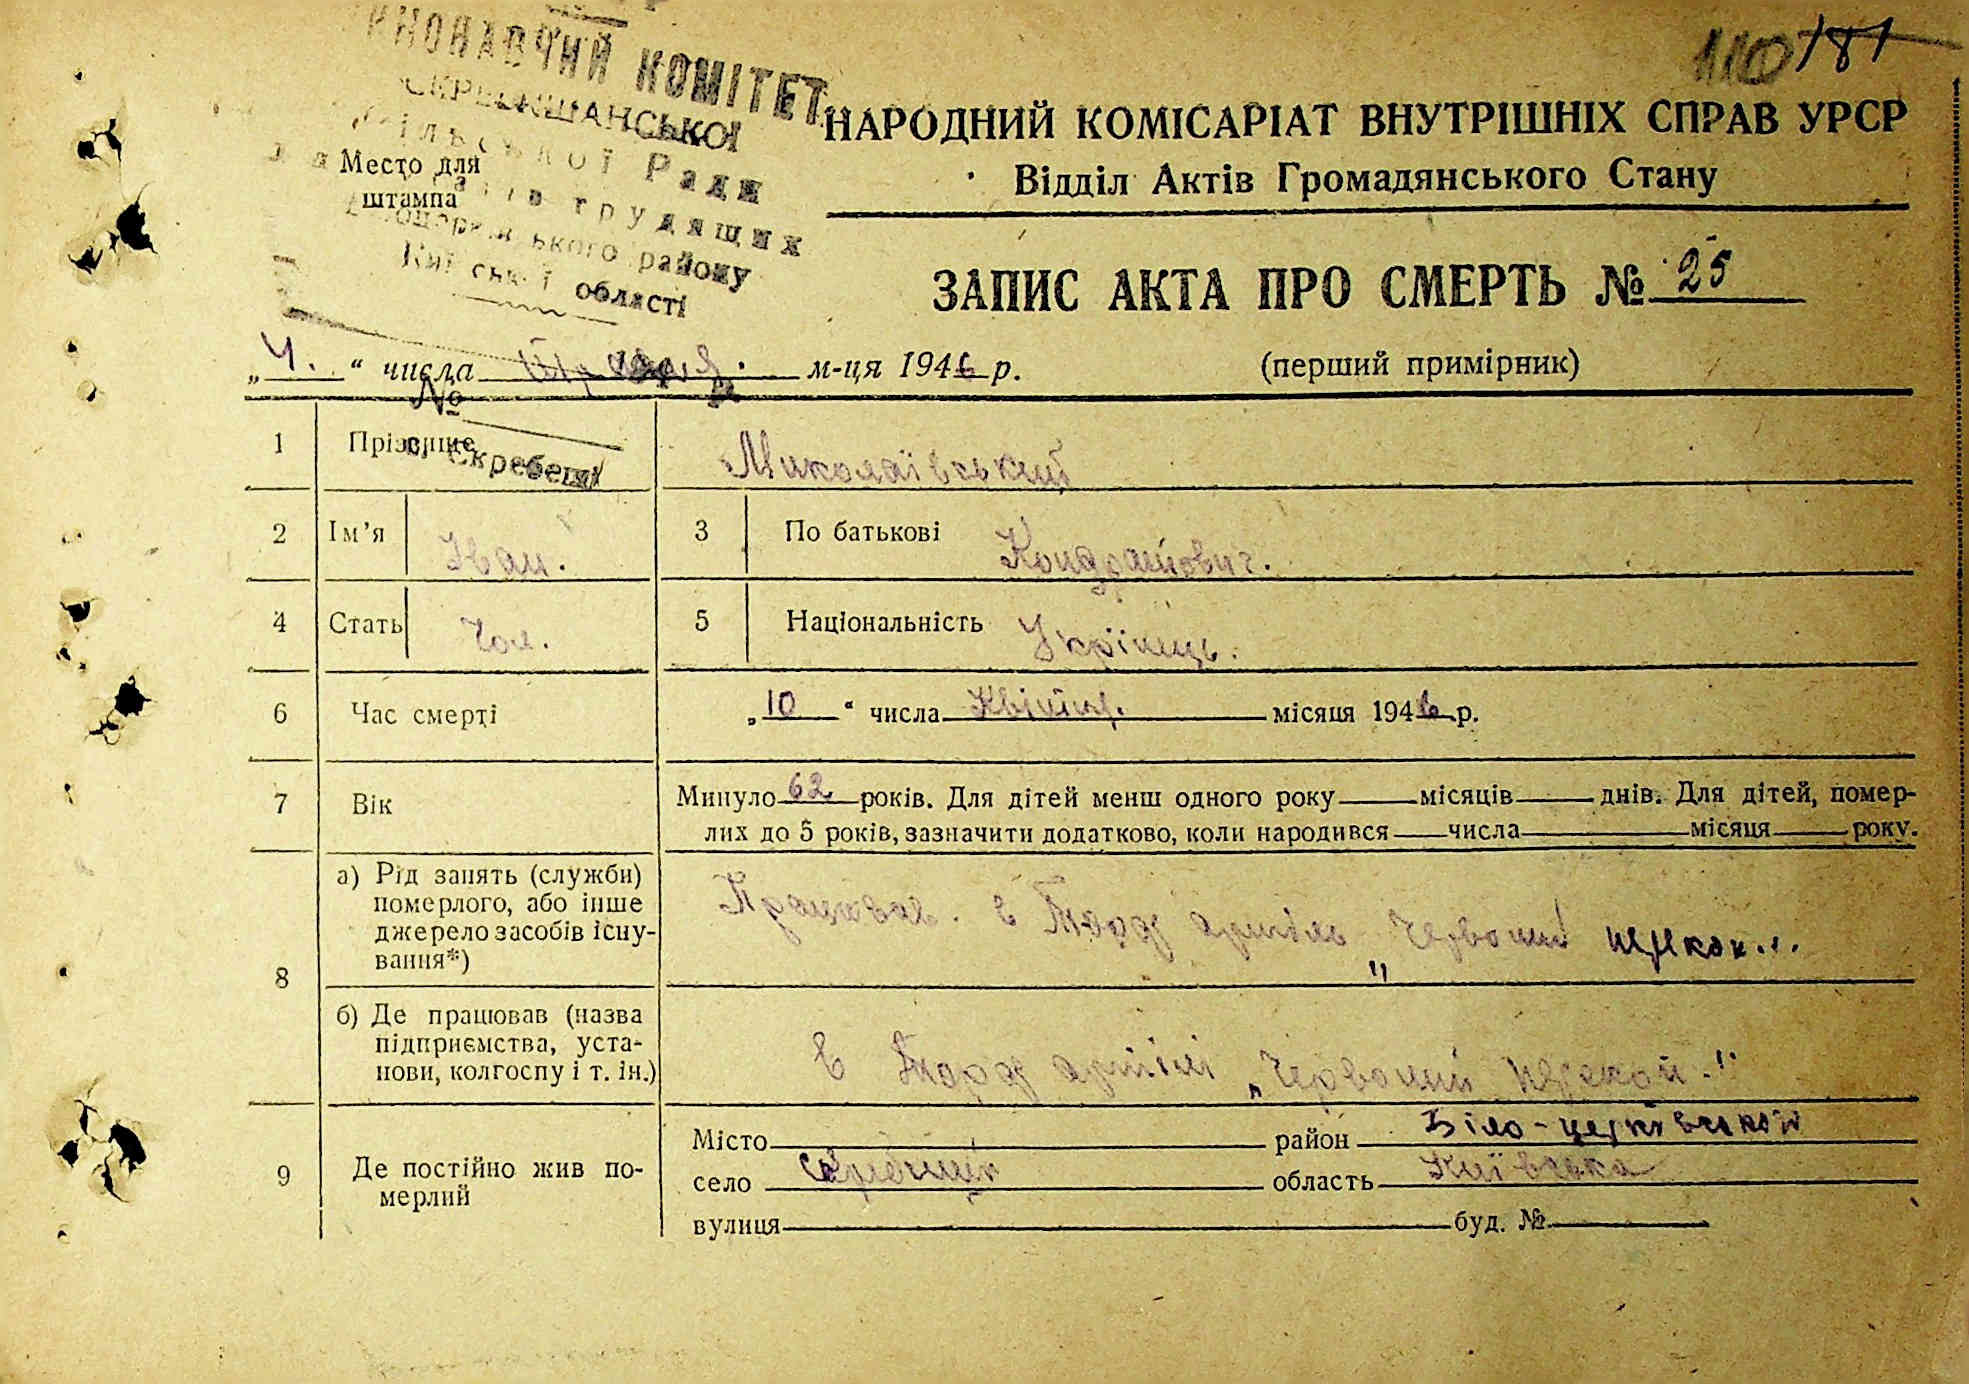 110/81
КОМІТЕТ
Ради
трудящих
району
області
Место для
штампа
НАРОДНИЙ КОМІСАРІАТ ВНУТРІШНІХ СПРАВ УРСР
Відділ Актів Громадянського Стану
ЗАПИС АКТА ПРО СМЕРТЬ № 25
„4.“ числа травня м-ця 1946 р. (перший примірник)
№
с. Скребеші
1 Прізвище Миколаївський
2 Ім'я Іван. 3 По батькові Кондратович.
4 Стать Чол. 5 Національність Укрінець.
6 Час смерті „10“ числа Квітня. місяця 1946 р.
7 Вік Минуло 62 років. Для дітей менш одного року місяців днів. Для дітей, помер-
лих до 5 років, зазначити додатково, коли народився числа місяця року.
8
а) Рід занять (служби)
померлого, або інше
джерело засобів існу-
вання*)
Працював. в артіль „Червоний
б) Де працював (назва
підприємства, уста-
нови, колгоспу і т. ін.)
в артілі „Червоний
9 Де постійно жив по-
мерлий
Місто район Біло-церківський
село область Київська
вулиця буд. №